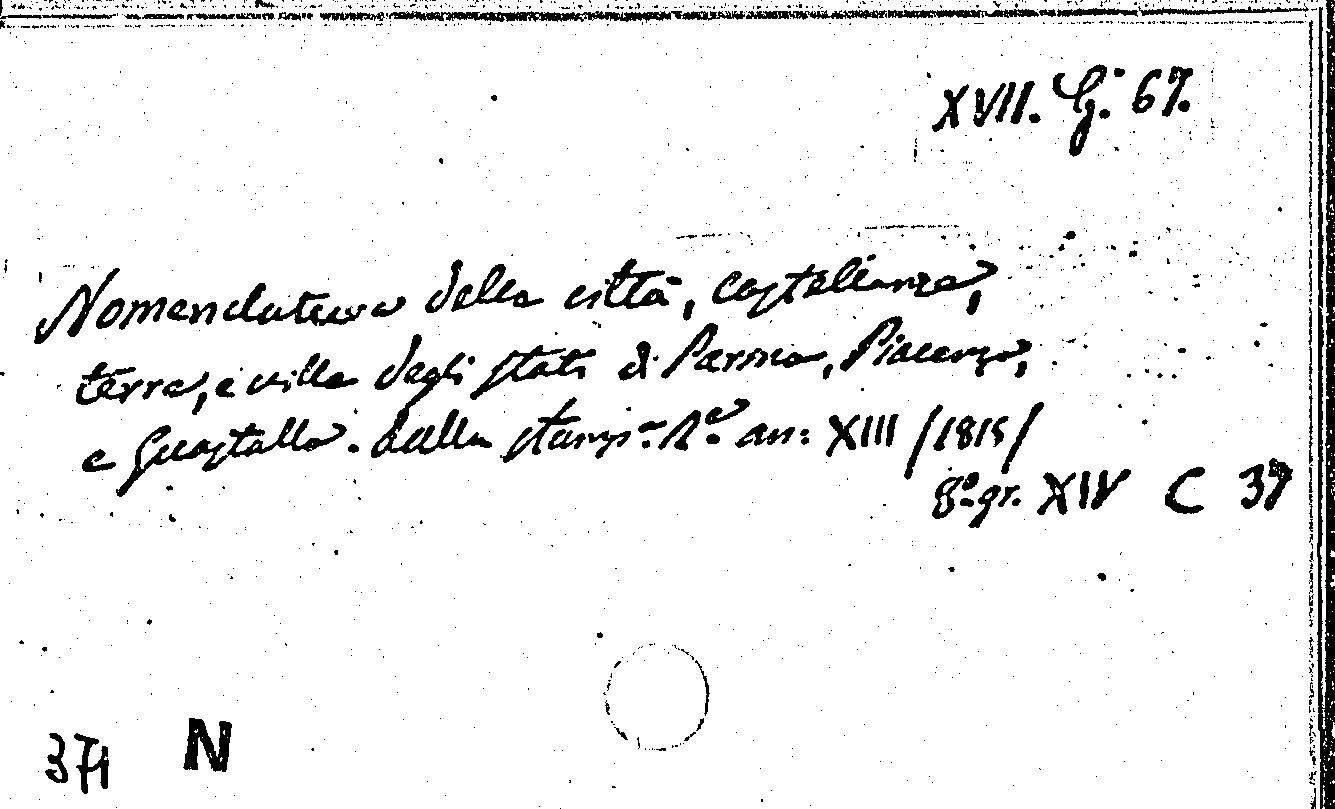 XVII. G. 67.
Nomenclatura delle città, castellanze,
terre, e ville degli stati di Parma, Piacenza,
e Guastalla. Dalla stamp.a R.e an: XIII /1815/
8.o gr. XIV C 37
371 N